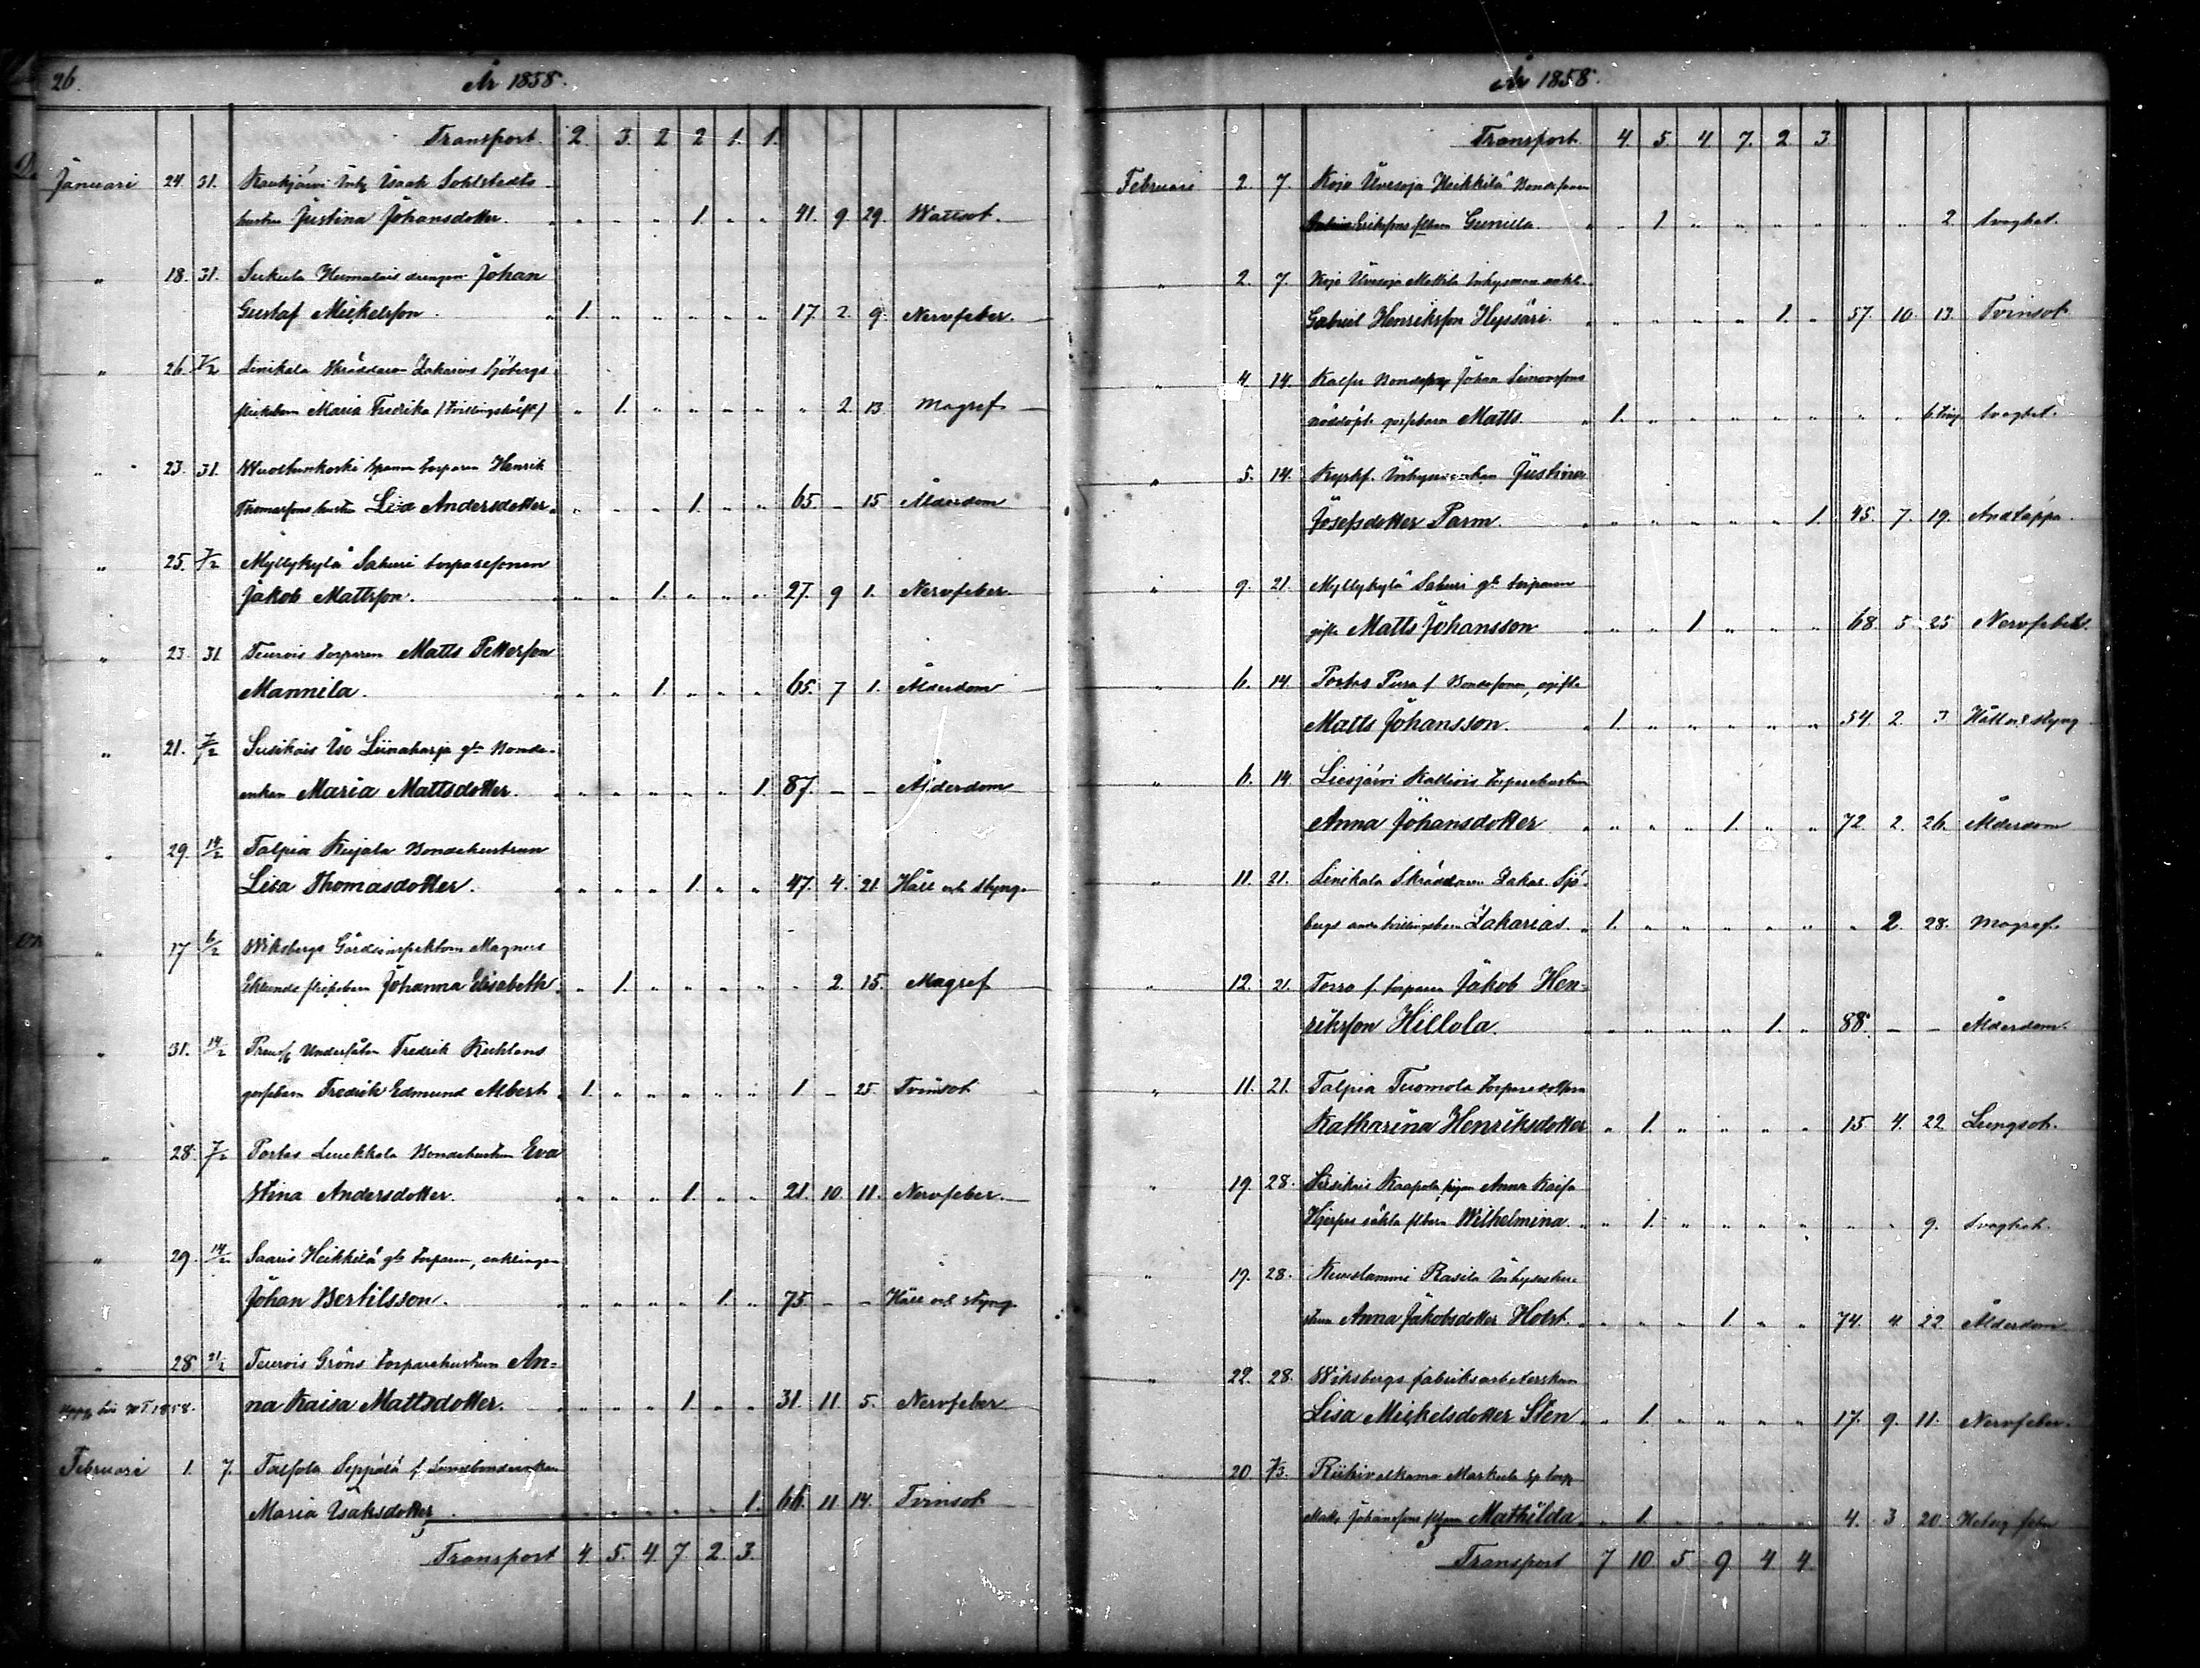 26.
År 1858.
Transport. 2. 3. 2 2 1. 1.
Januari 24. 31. Kaukjärvi Inh Isaak Sohlstedts
hustru Justina Johansdotter. " " " 1. " " 41. 9 29. Wattsot.
" 18. 31. Sukula drengen Johan
Gustaf Mickelsson. 1. " " " " " 17. 2. 9. Nervfeber.
" 26. 7/2 Linikala Skräddaren Zakarias Sjöbergs
flickebarn Maria Fredrika (tvillingshälft) " 1. " " " " " 2. 13. Magref
" 23. 31. torparen Henrik
Thomassons hustru Lisa Andersdotter. " " " 1. " " 65. - 15 Ålderdom
" 25. 7/2 Myllykylä Sahuri torparesonen
Jakob Mattsson. " " 1. " " " 27. 9 1. Nervfeber.
" 23. 31 Teurois torparen Matts Pettersson
Mannila. " " 1. " " " 65. 7 1. Ålderdom
" 21. 7/2 Susikais Iso Liinaharja gle Bonde-
enkan Maria Mattsdotter. " " " " " 1. 87. - - Ålderdom
" 29. 14/2 Talpia Kujala Bondehustrun
Lisa Thomasdotter. " " " 1. " " 47. 4. 21. Håll och styng.
" 17 6/2 Wiksbergs Gårdsinspektoren Magnus
Eklunds flickebarn Johanna Elisabeth. " 1. " " " " " 2. 15. Magref
" 31. 14/2 Undersåten Fredrik
gossebarn Fredrik Edmund Albert. 1. " " " " " 1 - 25. Tvinsot
" 28. 7/2 Portas Bondehustrun Eva
Stina Andersdotter. " " " 1. " " 21. 10. 11. Nervfeber.
" 29. 14/2 Saaris Heikkilä gle torparen, enklingen
Johan Bertilsson. " " " " 1. " 75 - - Håll och styng
" 28 21/2 Teurois Gröns torparehustrun An-
1858. na Kaisa Mattsdotter. " " " 1. " " 31. 11. 5. Nervfeber
Februari 1. 7. Seppälä f.
Maria Isaksdotter " " " " " 1. 66. 11 14. Tvinsot
Transport 4. 5. 4. 7 2. 3.
År 1858.
Transport 4. 5. 4 7. 2. 3
Februari 2. 7. Kojo Uusioja Heikkilä Bondesonen
Erikssons flbarn Gunilla. " 1 " " " " " " 2 Svaghet.
" 2. 7. Kojo Uusioja Mattila Inhysman enkl.
Gabriel Henriksson Hyssäri. " " " " 1. " 57. 10. 13. Tvinsot
" 4. 14. Bondeson Johan Simonssons
nöddöpt gossebarn Matts 1. " " " " " " " 6 tim. Svaghet.
" 5. 14. Kyrkb. Inhysenkan Justina
Josefsdotter Parm. " " " " " 1. 45. 7. 19. Andtäppa.
" 9. 21. Myllykylä Sahuri gle torparen
gifte Matts Johansson " " 1 " " " 68. 5 25 Nervfeber.
" 6. 14. Portas Pura f Bondesonen, ogifte
Matts Johansson. 1. " " " " " 54 2. 3 Håll och styng
" 6. 14. Liesjärvi torparehustrun
Anna Johansdotter " " " 1. " " 72. 2. 26. Ålderdom
" 11. 21. Linikala Skräddaren Zakar. Sjö-
bergs andra tvillingsbarn Zakarias. 1. " " " " " " 2. 28. Magref.
" 12. 21. Torro f. torparen Jakob Hen-
riksson Hillola. " " " " 1. " 88. - - Ålderdom.
" 11. 21. Talpia Tuomola torparedottern
Katharina Henriksdotter " 1. " " " " 15. 4. 22 Lungsot.
" 19 28. Susikais Kaapola pigan Anna Kaisa
oäkta flbarn Wilhelmina. " 1. " " " " " " 9. Svaghet.
" 19. 28. Kuuslammi Rasila Inhyseshu-
strun Anna Jakobsdotter Holst. " " " 1. " " 74. 4. 22 Ålderdom
" 22. 28. Wiksbergs fabriksarbeterskan
Lisa Mickelsdotter Sten " 1. " " " " 17. 9. 11. Nervfeber.
" 20 7/3. Riihivalkama Markula
Matts Johanssons flbarn Mathilda. " 1. " " " " 4. 3 20. Hetsig feber
Transport 7 10. 5. 9. 4 4.